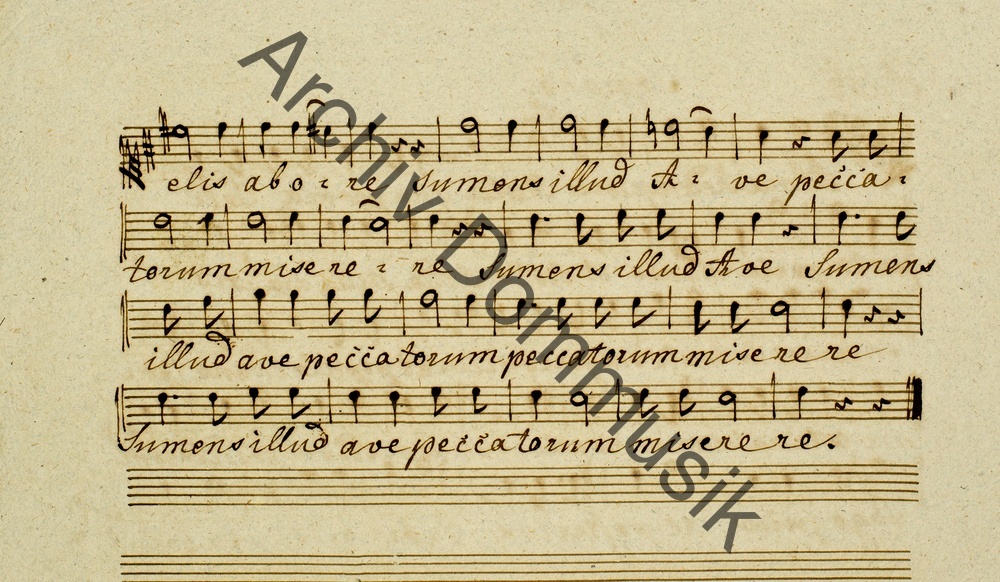 elis abo-re Sumens illud A-ve pecca-
torum misere-re Sumens illud Ave Sumens
illud ave peccatorum peccatorum miserere
Sumens illud ave peccatorum miserere.
Archiv Dommusik